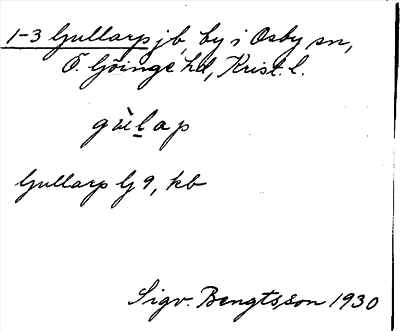 1-3 Gullarp jb, by i Osby sn,
Ö. Göinge hd, Krist. l.
gùlap
Gullarp G 9, kb
Sigv. Bengtsson 1930